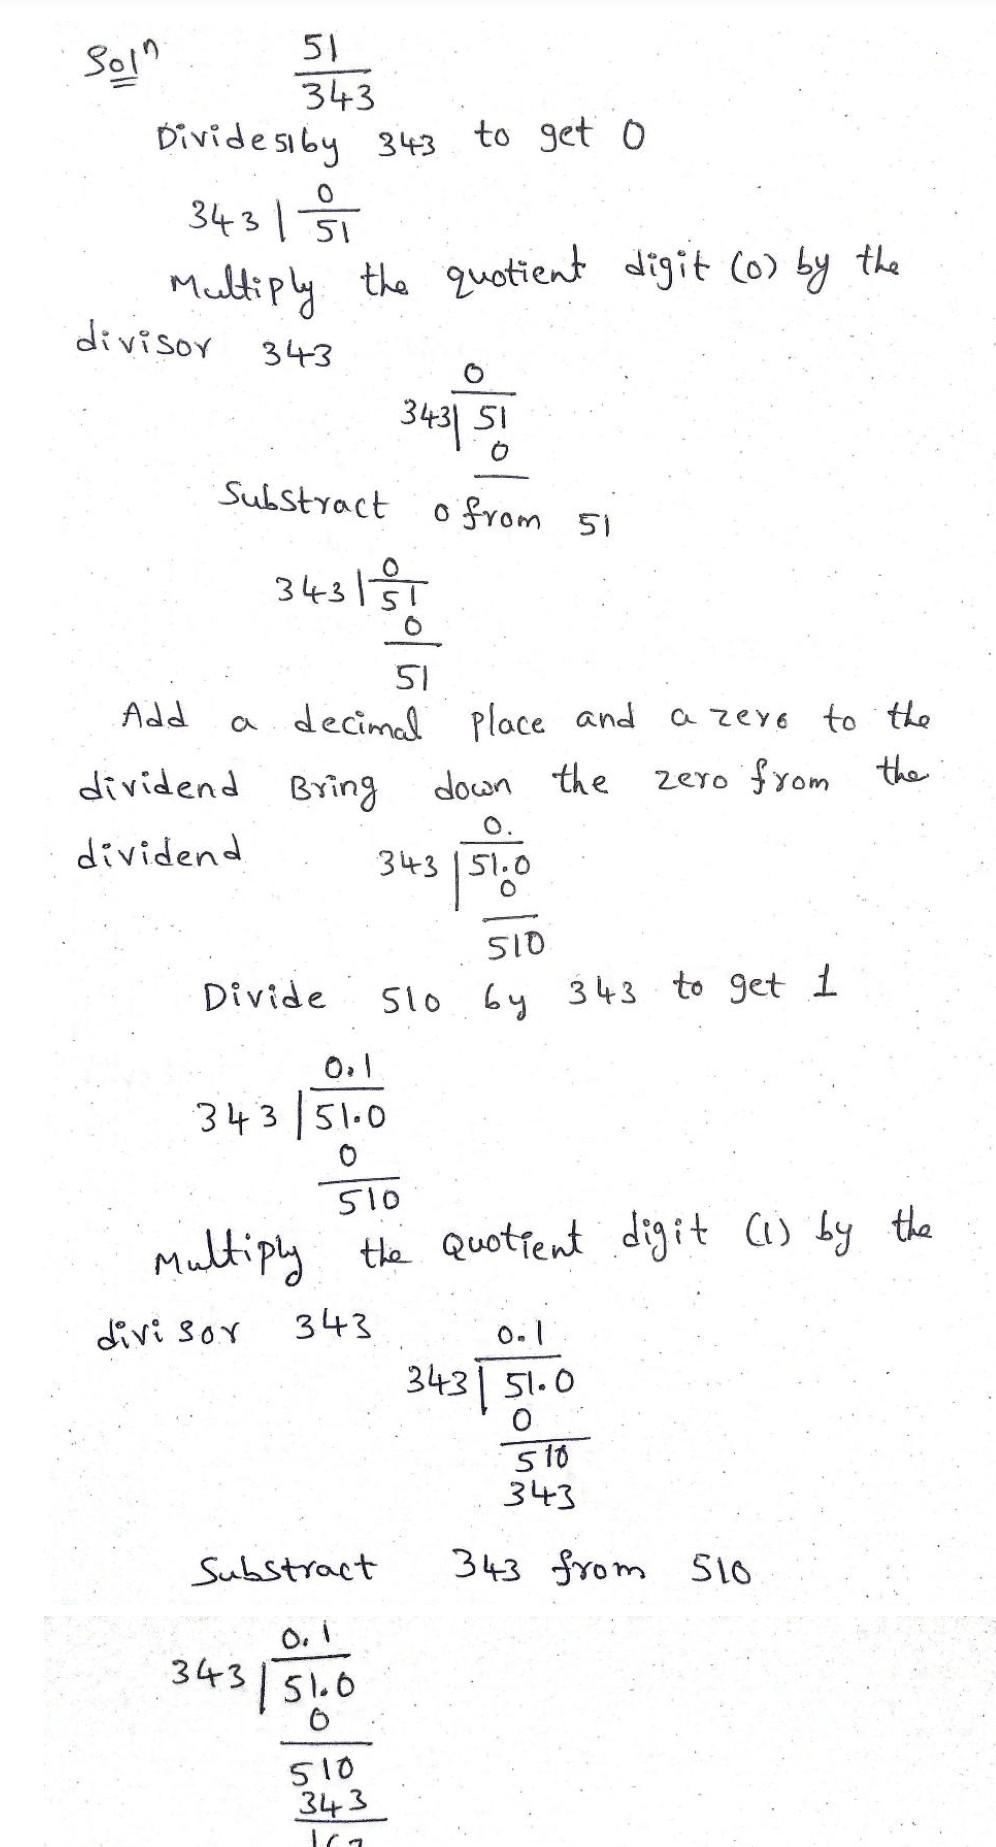 Solⁿ 51
343
Divide 51 by 343 to get 0
0
343 | 51
Multiply the quotient digit (0) by the
divisor 343
0
343 | 51
0
Substract 0 from 51
0
343 | 51
0
51
Add a decimal place and a zero to the
dividend Bring down the zero from the
dividend
0.
343 | 51.0
0
510
Divide 510 by 343 to get 1
0.1
343 | 51.0
0
510
Multiply the Quotient digit (1) by the
divisor 343
0.1
343 | 51.0
0
510
343
Substract 343 from 510
0.1
343 | 51.0
0
510
343